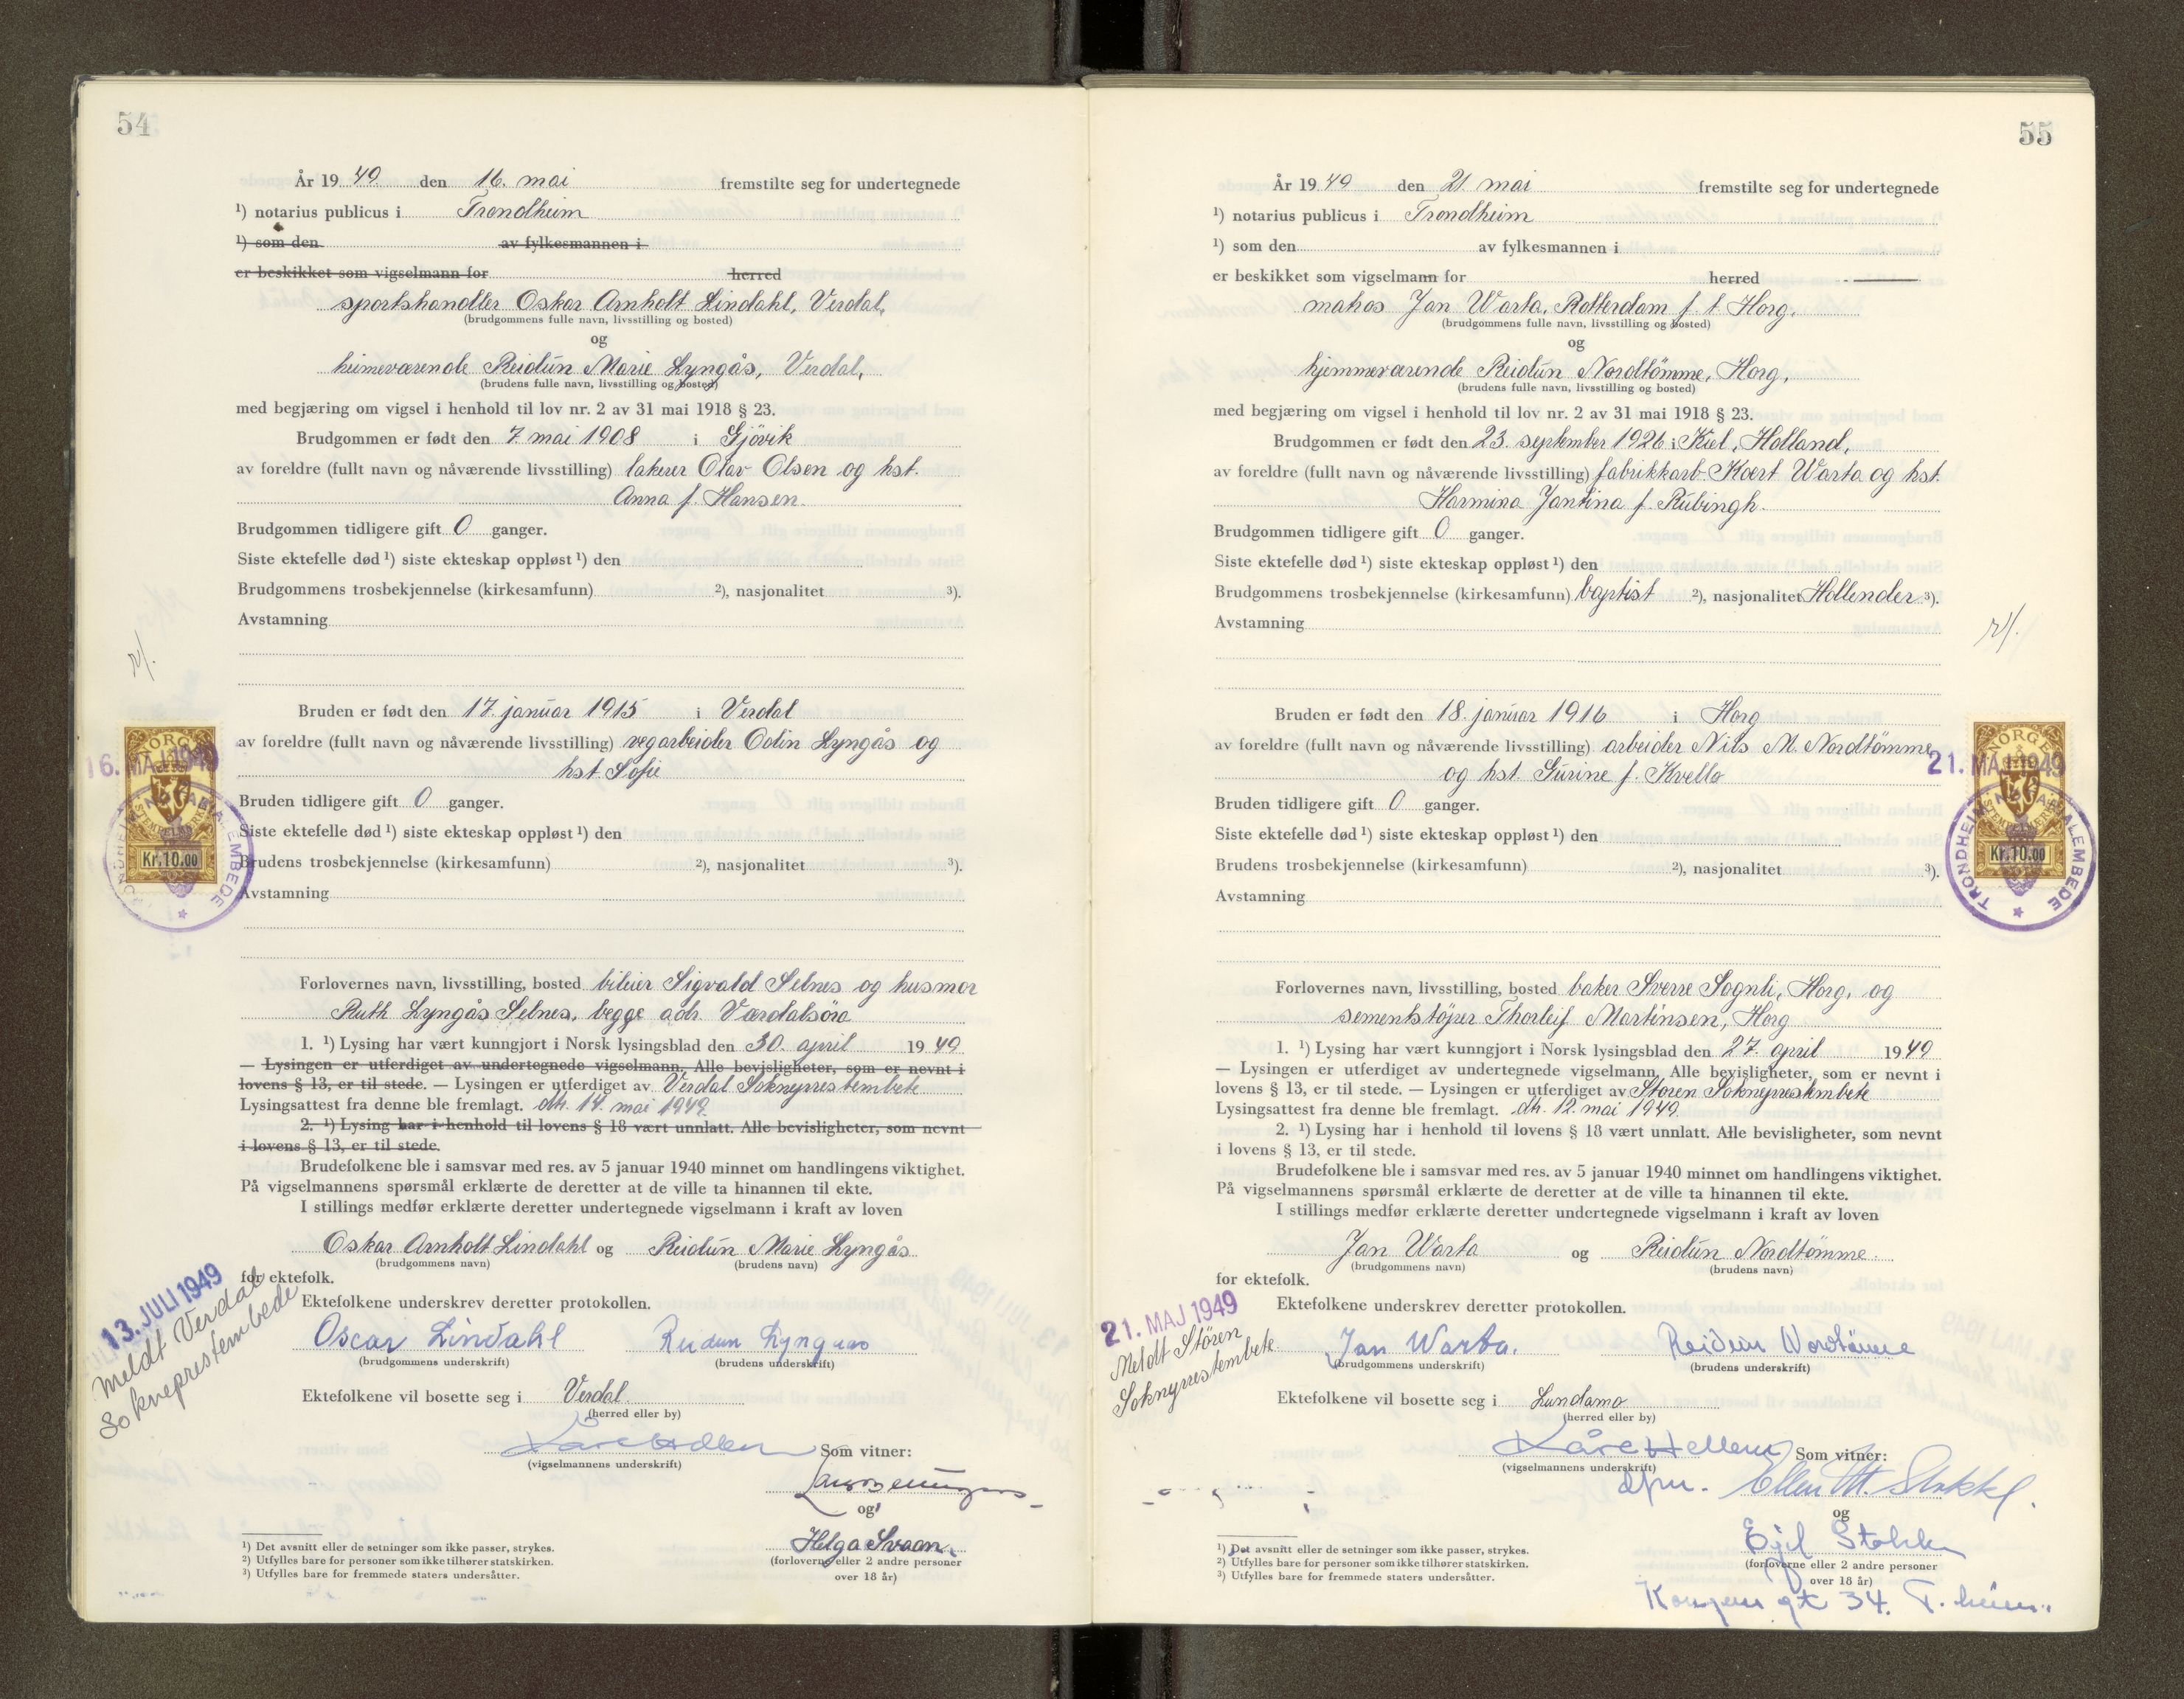 54
År 19 49 den 16. mai fremstilte seg for undertegnede
¹) notarius publicus i Trondheim
¹) som den av fylkesmannen i
er beskikket som vigselmann for herred
sportshandler Oskar Arnholt Lindahl, Verdal,
(brudgommens fulle navn, livsstilling og bosted)
og
heimeværende Reidun Marie Lyngås, Verdal,
(brudens fulle navn, livsstilling og bosted)
med begjæring om vigsel i henhold til lov nr. 2 av 31 mai 1918 § 23.
Brudgommen er født den 7. mai 1908 i Gjövik
av foreldre (fullt navn og nåværende livsstilling) lakerer Olav Olsen og hst.
Anna f. Hansen.
Brudgommen tidligere gift 0 ganger.
Siste ektefelle død ¹) siste ekteskap oppløst ¹) den
Brudgommens trosbekjennelse (kirkesamfunn) ²), nasjonalitet ³).
Avstamning
Bruden er født den 17. januar 1915 i Verdal
av foreldre (fullt navn og nåværende livsstilling) vegarbeider Odin Lyngås og
hst. Sofie
Bruden tidligere gift 0 ganger.
Siste ektefelle død ¹) siste ekteskap oppløst ¹) den
Brudens trosbekjennelse (kirkesamfunn) ²), nasjonalitet ³).
Avstamning
16. MAJ 1949
NORGE
STEMPELMERKE
Kr.10.00
TRONDHEIMS NOTARIALEMBEDE
Forlovernes navn, livsstilling, bosted bileier Sigvald Selnes og husmor
Ruth Lyngås Selnes, begge adr. Værdalsöra
1. ¹) Lysing har vært kunngjort i Norsk lysingsblad den 30. april 19 49
— Lysingen er utferdiget av undertegnede vigselmann. Alle bevisligheter, som er nevnt i
lovens § 13, er til stede. — Lysingen er utferdiget av Verdal Sokneprestembete
Lysingsattest fra denne ble fremlagt. dtr. 14. mai 1949.
2. ¹) Lysing har i henhold til lovens § 18 vært unnlatt. Alle bevisligheter, som nevnt
i lovens § 13, er til stede.
Brudefolkene ble i samsvar med res. av 5 januar 1940 minnet om handlingens viktighet.
På vigselmannens spørsmål erklærte de deretter at de ville ta hinannen til ekte.
I stillings medfør erklærte deretter undertegnede vigselmann i kraft av loven
Oskar Arnholt Lindahl og Reidun Marie Lyngås
(brudgommens navn) (brudens navn)
for ektefolk.
13. JULI 1949
Meldt Verdal
Sokneprestembede
Ektefolkene underskrev deretter protokollen.
Oscar Lindahl Reidun Lyngaas
(brudgommens underskrift) (brudens underskrift)
Ektefolkene vil bosette seg i Verdal.
(herred eller by)
Kåre Hellem Som vitner:
(vigselmannens underskrift)
og
Helga Svaan.
(forloverne eller 2 andre personer
over 18 år)
¹) Det avsnitt eller de setninger som ikke passer, strykes.
²) Utfylles bare for personer som ikke tilhører statskirken.
³) Utfylles bare for fremmede staters undersåtter.
55
År 19 49 den 21. mai fremstilte seg for undertegnede
¹) notarius publicus i Trondheim
¹) som den av fylkesmannen i
er beskikket som vigselmann for herred
matros Jan Warta, Rotterdam f. t. Horg.
(brudgommens fulle navn, livsstilling og bosted)
og
hjemmeværende Reidun Nordtömme, Horg,
(brudens fulle navn, livsstilling og bosted)
med begjæring om vigsel i henhold til lov nr. 2 av 31 mai 1918 § 23.
Brudgommen er født den 23. september 1926 i Kiel, Holland,
av foreldre (fullt navn og nåværende livsstilling) fabrikkarb. Koert Warta og hst.
Harmina Jantina f. Rubingh.
Brudgommen tidligere gift 0 ganger.
Siste ektefelle død ¹) siste ekteskap oppløst ¹) den
Brudgommens trosbekjennelse (kirkesamfunn) baptist ²), nasjonalitet Hollender ³).
Avstamning
Bruden er født den 18. januar 1916 i Horg
av foreldre (fullt navn og nåværende livsstilling) arbeider Nils M. Nordtömme
og hst. Gurine f. Kvello
Bruden tidligere gift 0 ganger.
Siste ektefelle død ¹) siste ekteskap oppløst ¹) den
Brudens trosbekjennelse (kirkesamfunn) ²), nasjonalitet ³).
Avstamning
21. MAJ 1949
NORGE
STEMPELMERKE
Kr.10.00
TRONDHEIMS NOTARIALEMBEDE
Forlovernes navn, livsstilling, bosted baker Sverre Sognli, Horg, og
sementstöper Thorleif Martinsen, Horg
1. ¹) Lysing har vært kunngjort i Norsk lysingsblad den 27. april 19 49
— Lysingen er utferdiget av undertegnede vigselmann. Alle bevisligheter, som er nevnt i
lovens § 13, er til stede. — Lysingen er utferdiget av Stören Sokneprestembete
Lysingsattest fra denne ble fremlagt. dtr. 12. mai 1949.
2. ¹) Lysing har i henhold til lovens § 18 vært unnlatt. Alle bevisligheter, som nevnt
i lovens § 13, er til stede.
Brudefolkene ble i samsvar med res. av 5 januar 1940 minnet om handlingens viktighet.
På vigselmannens spørsmål erklærte de deretter at de ville ta hinannen til ekte.
I stillings medfør erklærte deretter undertegnede vigselmann i kraft av loven
Jan Warta og Reidun Nordtömme.
(brudgommens navn) (brudens navn)
for ektefolk.
21. MAJ 1949
Meldt Stören
Sokneprestembete
Ektefolkene underskrev deretter protokollen.
Jan Warta. Reidun Nordtömme
(brudgommens underskrift) (brudens underskrift)
Ektefolkene vil bosette seg i Lundamo
(herred eller by)
Kåre Hellem Som vitner:
(vigselmannens underskrift)
Ellen M.
og
Egil
(forloverne eller 2 andre personer
over 18 år)
Kongens gt 34. T.heim.
¹) Det avsnitt eller de setninger som ikke passer, strykes.
²) Utfylles bare for personer som ikke tilhører statskirken.
³) Utfylles bare for fremmede staters undersåtter.